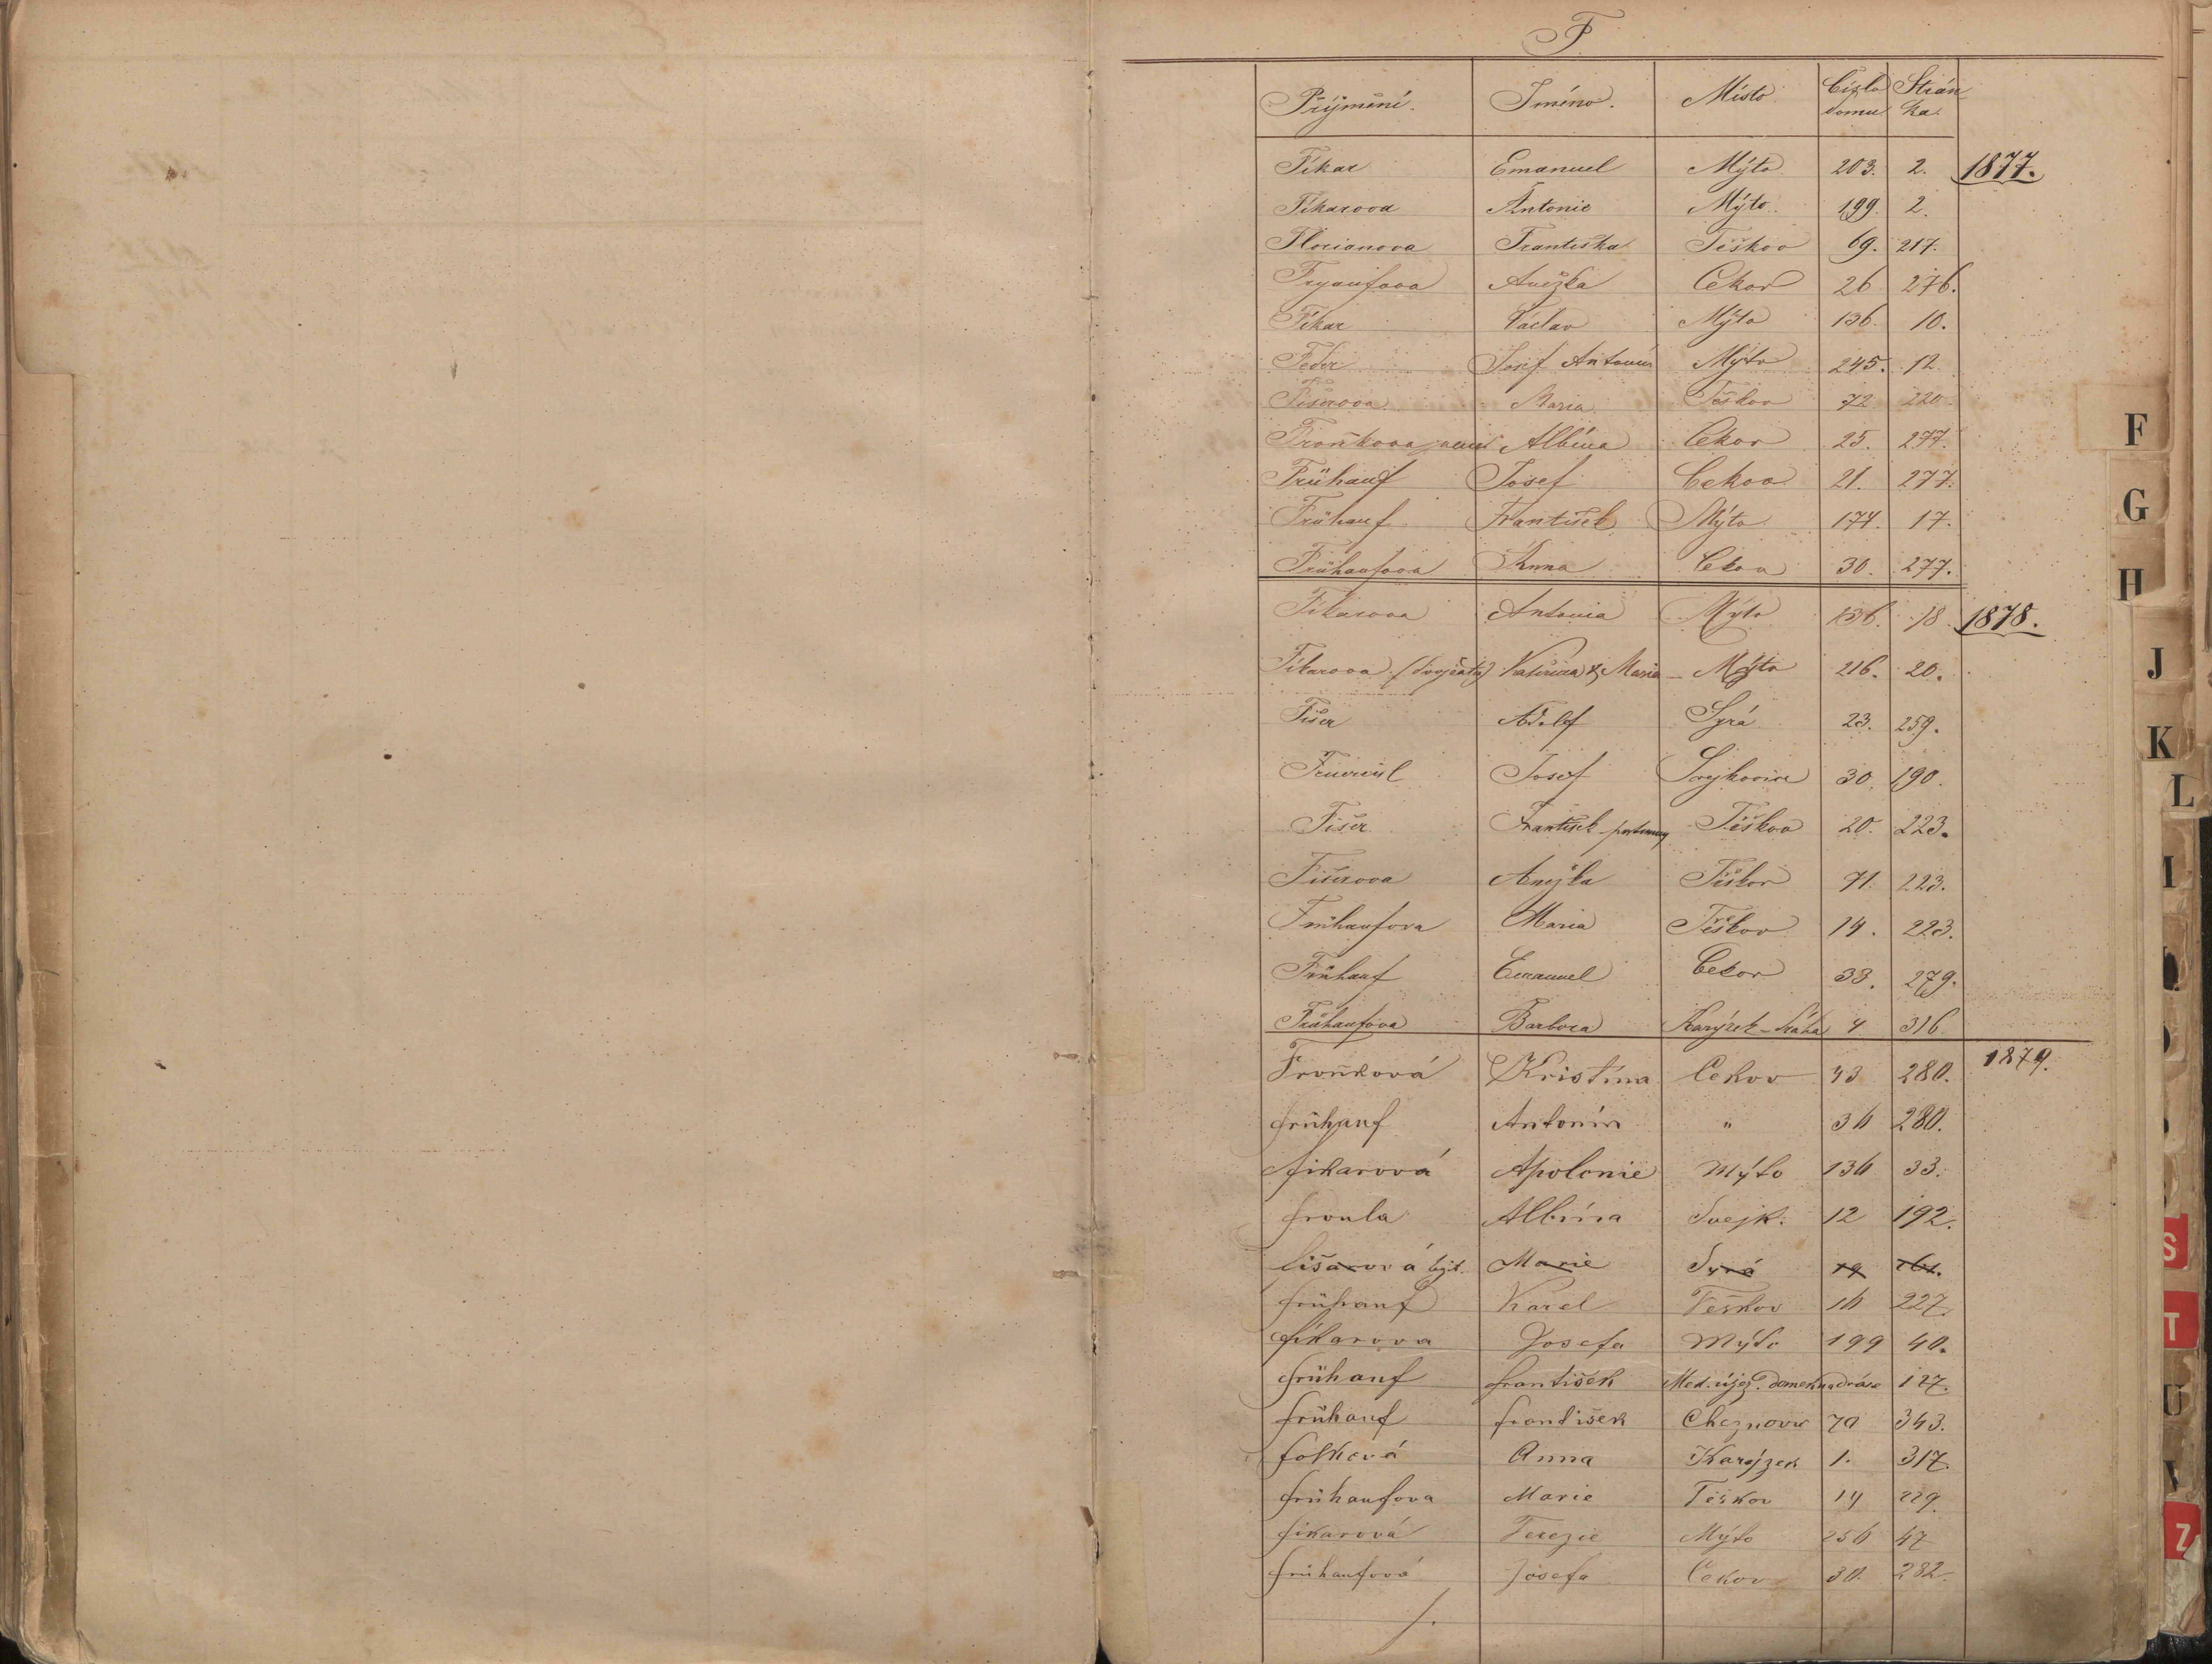 F
Příjmění. Jméno. Místo Číslo domu Stránka.
Fikar Emanuel Mýto 203. 2. 1877.
Fikarova Antonie Mýto 199. 2.
Florianova Františka Těškov 69. 217.
Anežka Cekov 26 276.
Fikar Václav Mýto 136. 10.
Feder Josef Antonín Mýto 245. 12.
Fišerova Maria Těškov 72 220
Froňkova Albína Cekov 25. 277.
Frühauf Josef Cekov 21. 277.
Frühauf František Mýto 174. 17.
Frühaufova Anna Cekov 30. 277.
Fikarova Antonia Mýto 136. 18. 1878.
Fikarova (dvojčata) Kateřina & Maria Mýto 216. 20.
Fišer Adolf Syrá 23. 259.
Josef 30. 190.
Fišer František Těškov 20. 223.
Fišerova Anežka Těškov 71. 223.
Frühaufova Maria Těškov 14. 223.
Frühauf Emanuel Cekov 33. 279.
Frühaufova Barbora Karýzek 4 316.
Froňková Kristina Cekov 43 280. 1879.
Frühauf Antonín " 36 280.
Fikarová Apolonie Mýto 136 33.
Froula Albína Svejk. 12 192.
Fišarová Marie Syrá 19
Frühauf Karel Těškov 16 227.
Fikarova Josefa Mýto 199 40.
Frühauf František Med. újez. domek 127.
Frühauf František 70 343.
Folková Anna Karýzek 1. 317.
Frühaufova Marie Těškov 14 229.
Fikarová Terezie Mýto 256 47
Frühaufová Josefa Cekov 30. 282.
F
G
H
J
K
L
S
T
U
V
Z